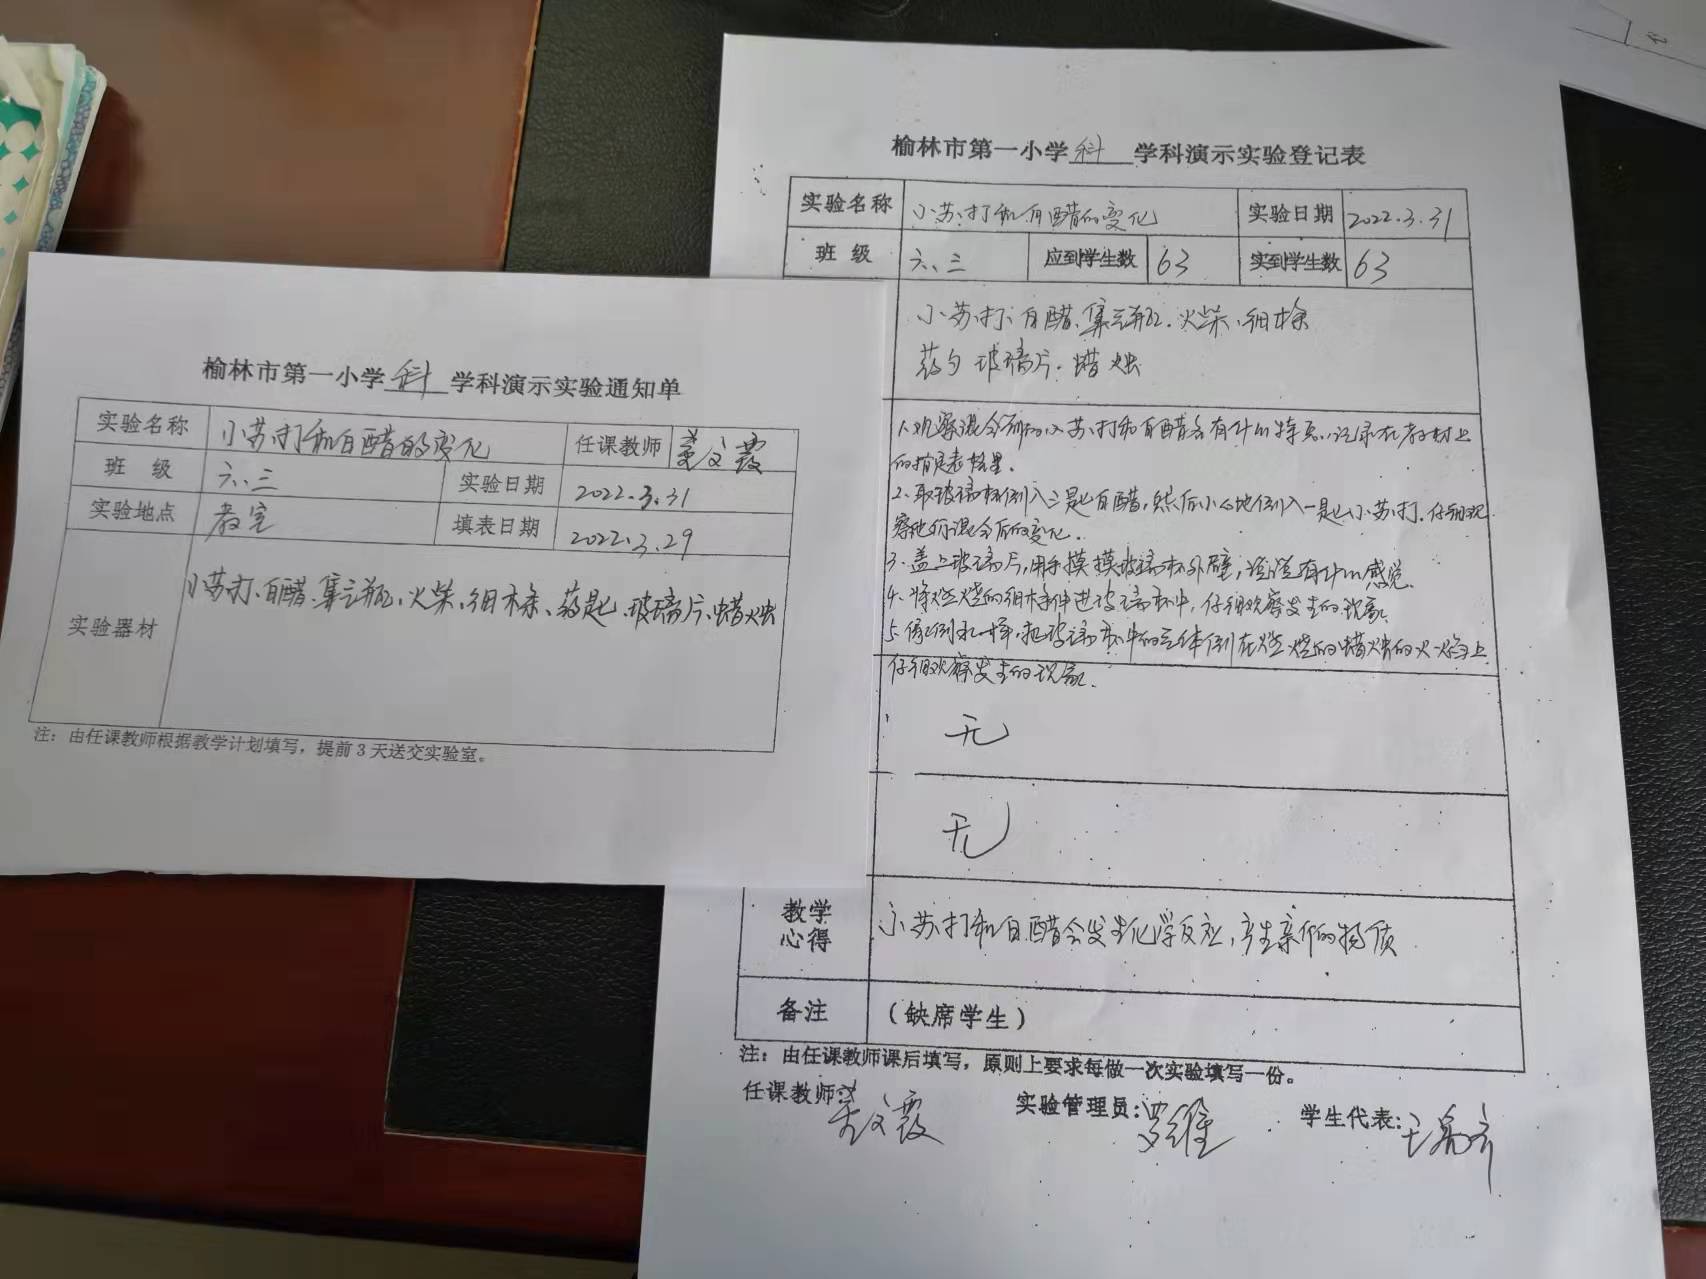 榆林市第一小学科学科演示实验通知单
实验名称 小苏打和白醋的变化 任课教师 姜文霞
班 级 六、三 实验日期 2022.3.31
实验地点 教室 填表日期 2022.3.29
实验器材 小苏打、白醋、集气瓶、火柴、细木条、药匙、玻璃片、蜡烛
注：由任课教师根据教学计划填写，提前3天送交实验室。
榆林市第一小学科学科演示实验登记表
实验名称 小苏打和白醋的变化 实验日期 2022.3.31
班 级 六、三 应到学生数 63 实到学生数 63
小苏打、白醋、集气瓶、火柴、细木条
药勺 玻璃片、蜡烛
1、观察混合前的小苏打和白醋各有什么特点，记录在教材上
的相应表格里。
2、取玻璃杯倒入三匙白醋，然后小心地倒入一匙小苏打，仔细观
察他们混合后的变化。
3、盖上玻璃片，用手摸摸玻璃杯外壁，说说有什么感觉。
4、将燃烧的细木条伸进玻璃杯中，仔细观察发生的现象。
5、像倒水一样，把玻璃杯中的气体倒在燃烧的蜡烛的火焰上
仔细观察发生的现象。
无
无
教学
心得 小苏打和白醋会发生化学反应，产生新的物质
备注 （缺席学生）
注：由任课教师课后填写，原则上要求每做一次实验填写一份。
任课教师： 姜文霞 实验管理员：罗维 学生代表：